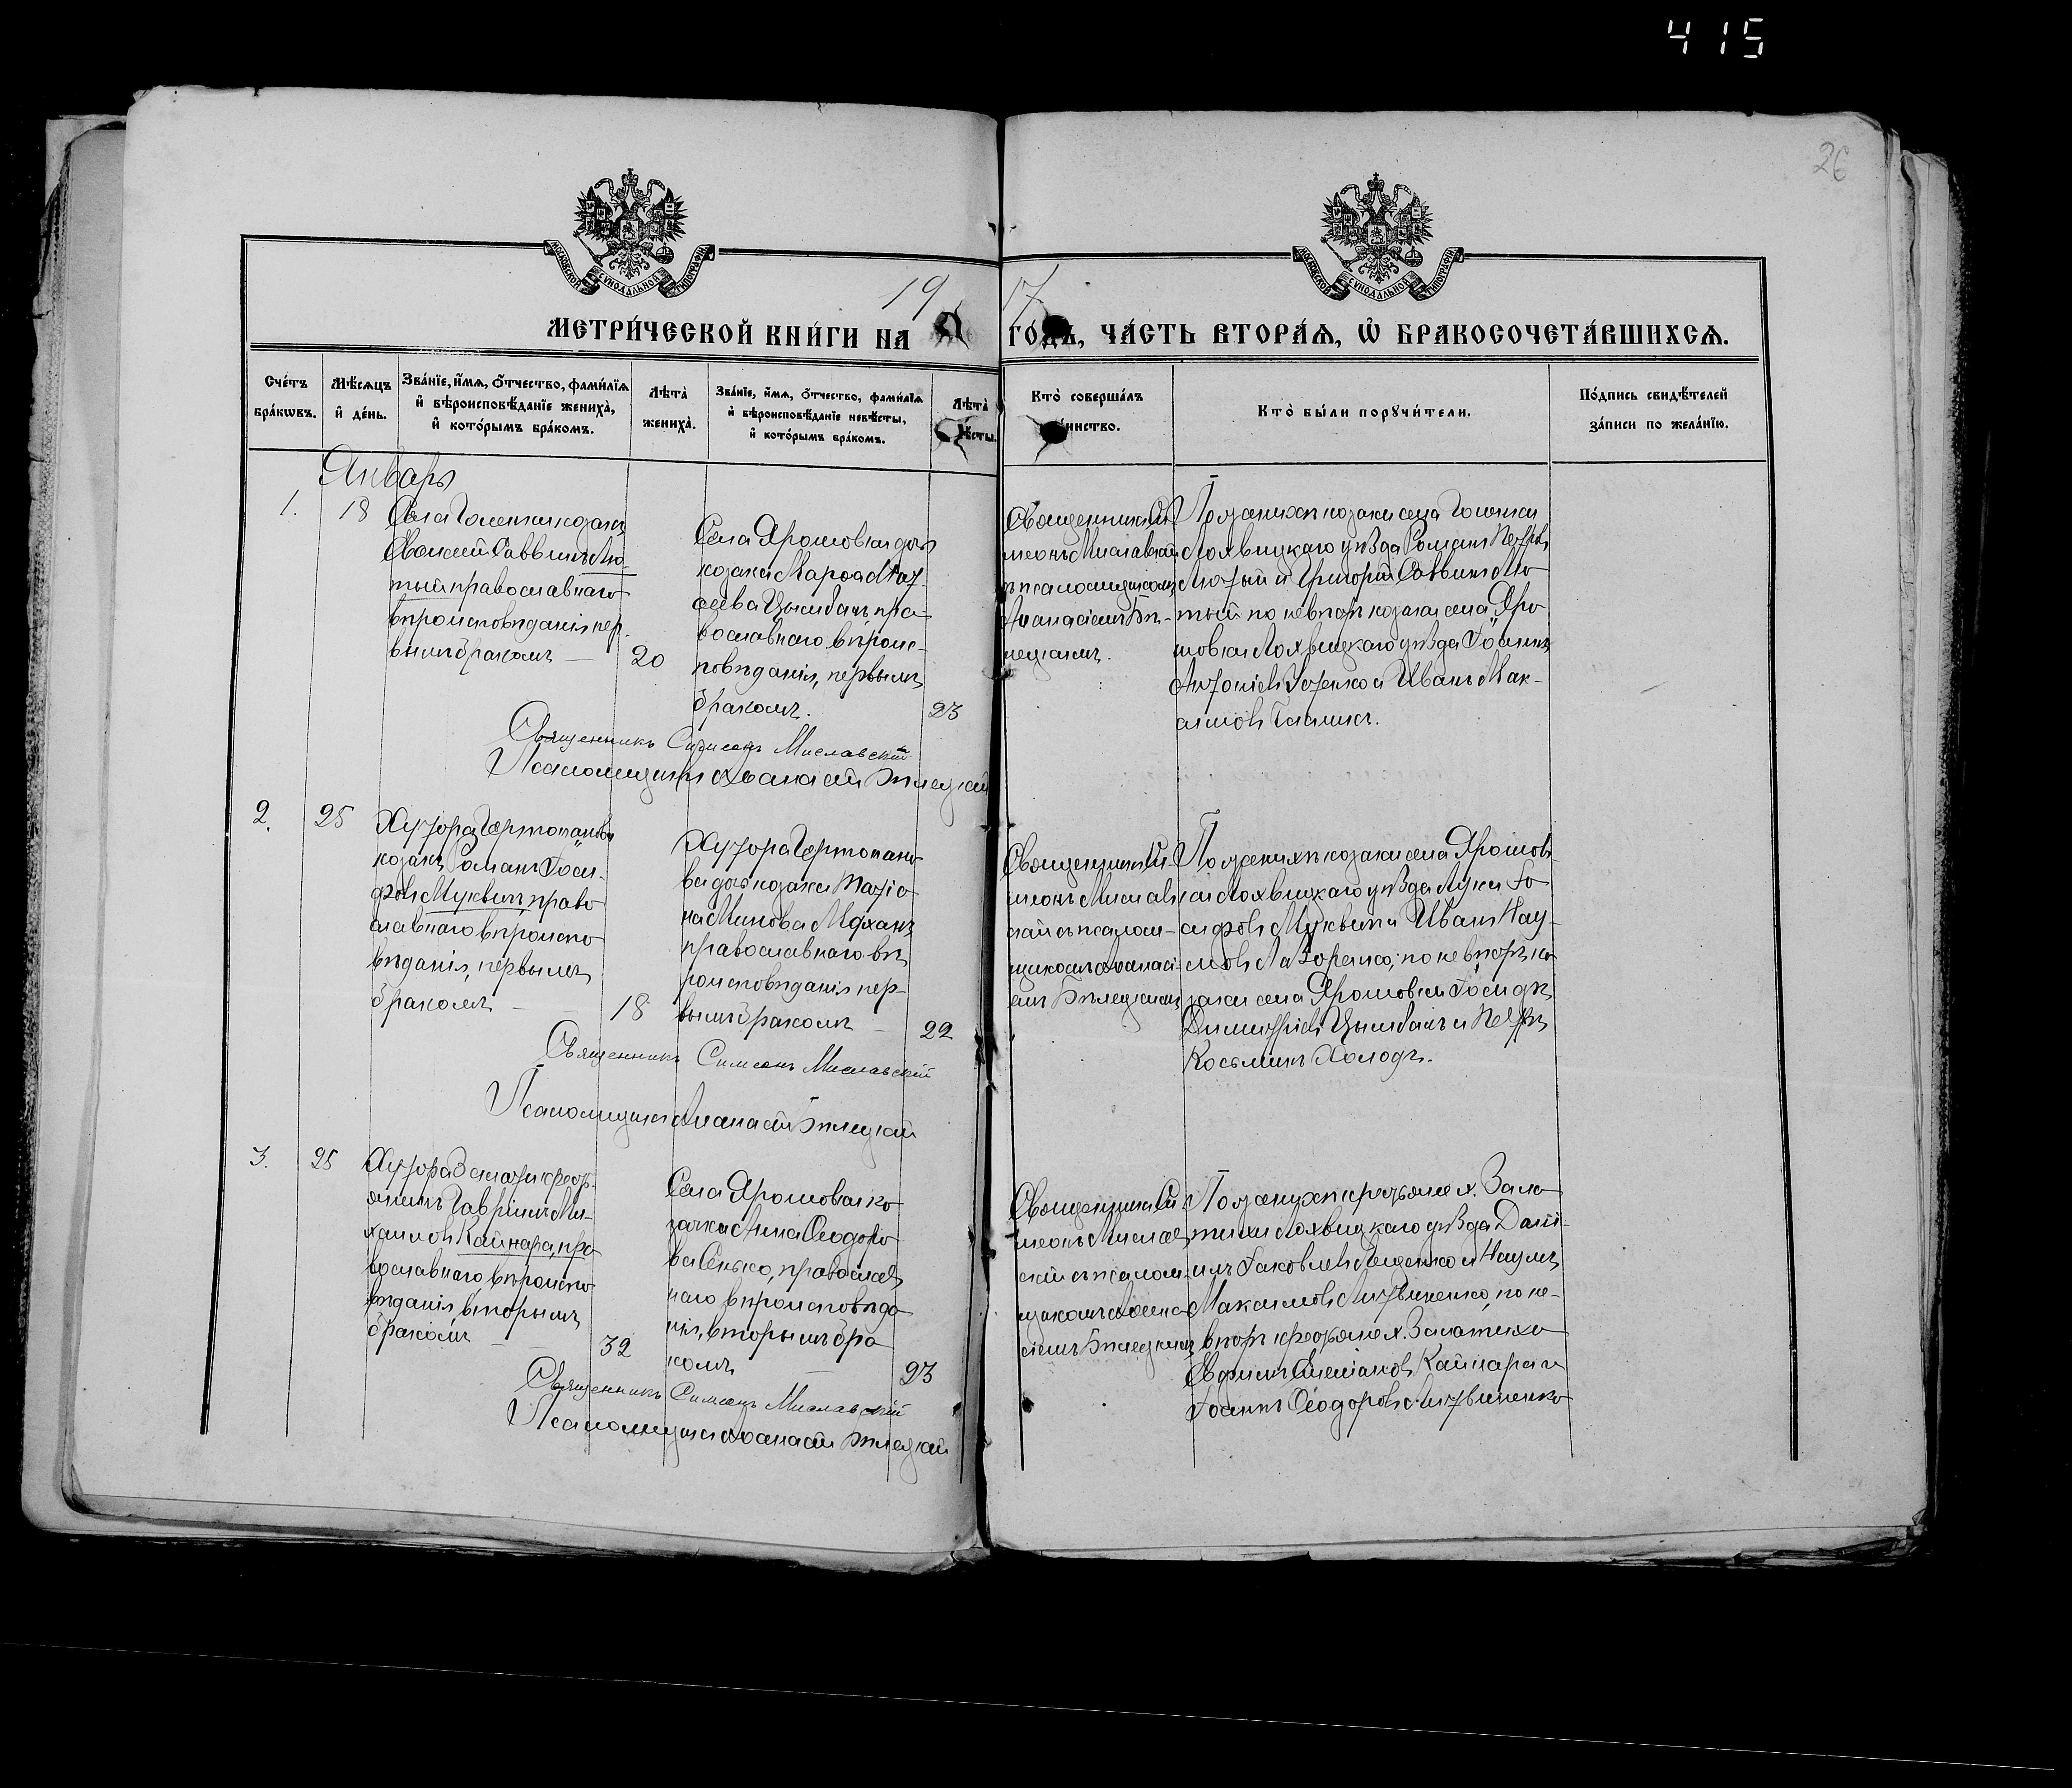 415
26
МОСКОВСКОЙ СѴНОДАЛЬНОЙ ТИПОГРАФІИ
МОСКОВСКОЙ СѴНОДАЛЬНОЙ ТИПОГРАФІИ
19 17
МЕТРИ́ЧЕСКОЙ КНИ́ГИ НА ГО́ДЪ, ЧА́СТЬ ВТОРА́Ѧ, Ѡ҆ БРАКОСОЧЕТА́ВШИХСѦ.
Сче́тъ бра́кѡвъ.
Мѣ́сѧцъ и҆ де́нь.
Зва́нїе, и҆́мѧ, ѻ҆́тчество, фами́лїѧ
и҆ вѣроисповѣ́данїе жениха̀,
и҆ кото́рымъ бра́комъ.
Лѣта̀ жениха̀.
Зва́нїе, и҆́мѧ, ѻ҆́тчество, фами́лїѧ
и҆ вѣроисповѣ́данїе невѣ́сты,
и҆ кото́рымъ бра́комъ.
Лѣта̀ ѣсты.
Кто̀ соверша́лъ инство.
Кто̀ бы́ли порꙋчи́тели.
По́дпись свидѣ́телей за́писи по жела́нїю.
Январь
1. 18
Села Голенки козакъ
Саввинъ Лю-
тый православнаго
вѣроисповѣданія пер-
вымъ бракомъ — 20
Села Ярошовки дочь
козака Марфа Мат-
ѳеева Цымбалъ, пра-
вославнаго вѣроис-
повѣданія, первымъ
бракомъ. 23
Священникъ Си-
меонъ Миславскій
съ псаломщикомъ
Аѳанасіемъ Бѣ-
лецкимъ.
По женихѣ козаки села Голенки
Лохвицкаго уѣзда Романъ Петровъ
Лютый и Григорій Саввинъ Лю-
тый по невѣстѣ козаки села Яро-
шовки Лохвицкаго уѣзда Іоаннъ
Антоніевъ и Иванъ Мак-
симовъ
Священникъ Симеонъ Миславскій
Псаломщикъ Аѳанасій Бѣлецкій
2. 25
Хутора Чертопановки
козакъ Романъ Іоси-
фовъ Муквичъ, право-
славнаго вѣроиспо-
вѣданія, первымъ
бракомъ — 18
Хутора Чертопанов-
ки дочь козака Татіа-
на Минова
православнаго вѣ-
роисповѣданія пер-
вымъ бракомъ — 22
Священникъ Си-
меонъ Мислав-
скій съ псалом-
щикомъ Аѳанасі-
емъ Бѣлецкимъ
По женихѣ козаки села Ярошов-
ки Лохвицкаго уѣзда Лука Іо-
сифовъ Муквичъ и Иванъ Нау-
мовъ по невѣстѣ ко-
заки села Ярошовки Іосифъ
Димитріевъ Цымбалъ и Петръ
Косьминъ Холодъ.
Священникъ Симеонъ Миславскій
Псаломщикъ Аѳанасій Бѣлецкій
3. 25
Хутора Залатихи кресть-
янинъ Гавріилъ Ми-
хаиловъ Кайнара, пра-
вославнаго вѣроиспо-
вѣданія, вторымъ
бракомъ — 32
Села Ярошовки ко-
зачка Анна Ѳеодоро-
ва Сенько, православ-
наго вѣроисповѣда-
нія, вторымъ бра-
комъ — 23
Священникъ Си-
меонъ Мислав-
скій съ псалом-
щикомъ Аѳана-
сіемъ Бѣлецкимъ
По женихѣ крестьяне х. Зала-
тихи Лохвицкаго уѣзда Дані-
илъ Іаковлевъ Лещенко и Наумъ
Максимовъ Литвиненко, по не-
вѣстѣ крестьяне х. Залатихи
Евфимъ Стефановъ Кайнара и
Іоаннъ Ѳеодоровъ Литвиненко
Священникъ Симеонъ Миславскій
Псаломщикъ Аѳанасій Бѣлецкій